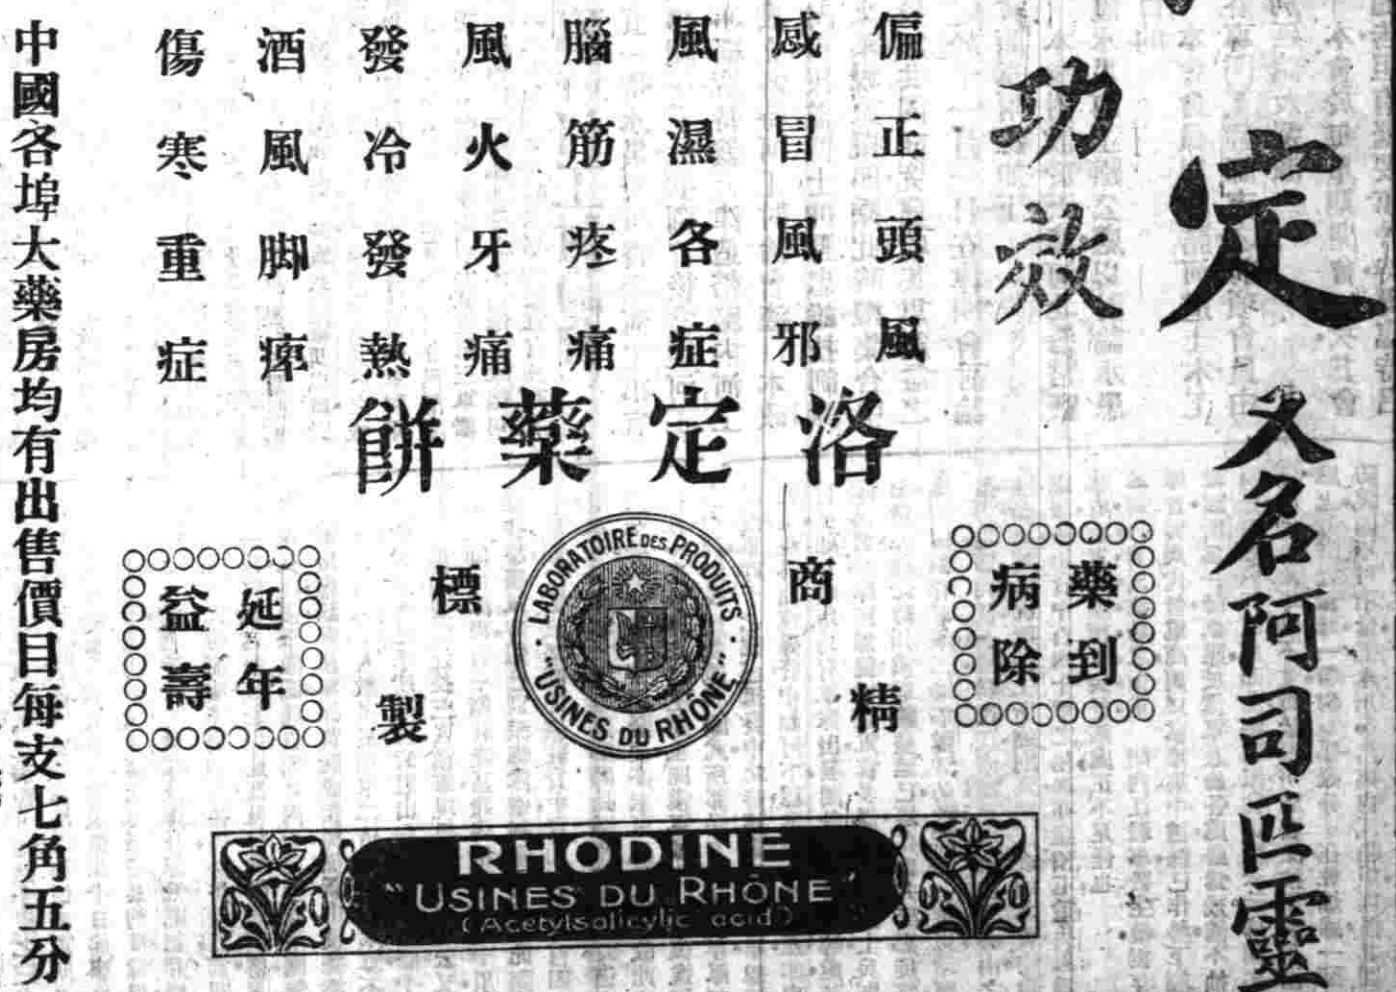 定
又名阿司匹靈
功效
偏正頭風
感冒風邪
風濕各症
腦筋疼痛
風火牙痛
發冷發熱
酒風脚㾓
傷寒重症
洛定藥餅
藥到
病除
商標
精製
LABORATOIRE DES PRODUITS
"USINES DU RHÔNE"
延年
益壽
RHODINE
"USINES DU RHÔNE"
(Acetylsalicylic acid)
中國各埠大藥房均有出售價目每支七角五分